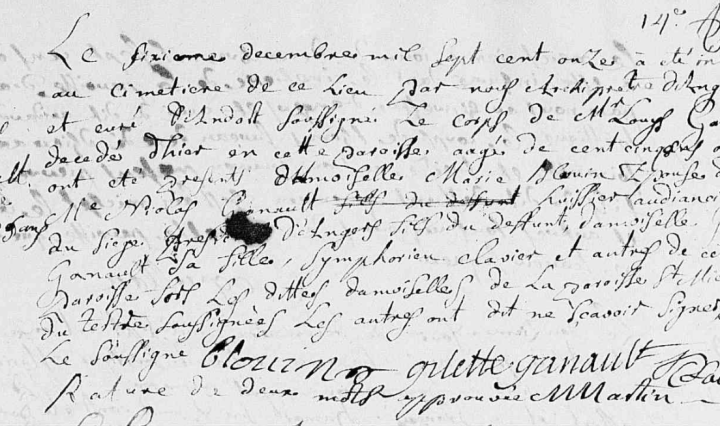 14e
Le sixieme decembre mil sept cent onze à été in
au cimetiere de ce lieu par nous Archipretre d'Ang
et curé d'Andart soussigné Le corps de Mr Louys Ga
decedé d'hier en cette paroisse aagé de cent cinq ans
ont eté presents damoiselle Marie Blouin Epouse d
Me Nicolas Ganault fils du deffunt huissier audiancier
du siege d'Angers fils du deffunt, damoiselle
Ganault sa fille, Symphorien Clavier et autres de ce
paroisse sors Les dittes damoiselles de La paroisse St Mi
du tertre soussignées Les autres ont dit ne sçavoir signer
Le soussigne Blouin gilette ganault
Rature de deux mots approuvée MMartin